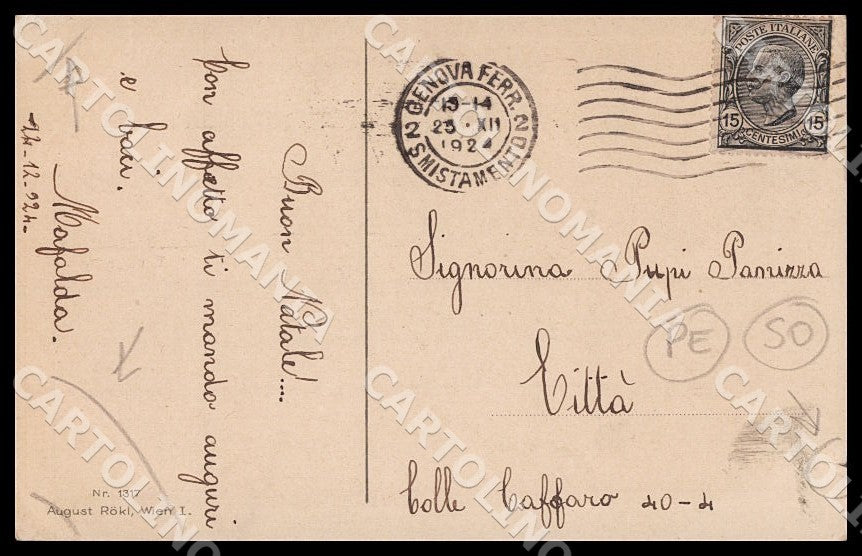 Buon Natale!....
Con affetto ti mando auguri
e baci.
Mafalda.
24-12-924-
Nr. 1317
August Rökl, Wien I.
GENOVA FERR. N
2 SMISTAMENTO
13-14
25 XII
1924
POSTE ITALIANE
15 CENTESIMI 15
Signorina Pupi Panizza
PE SO
Città
Colle Caffaro 40-4
CARTOLINOMANIA
CARTOLINOMANIA
CARTOLINOMANIA
CARTOLINOMANIA
CARTOLINOMANIA
CARTOLINOMANIA